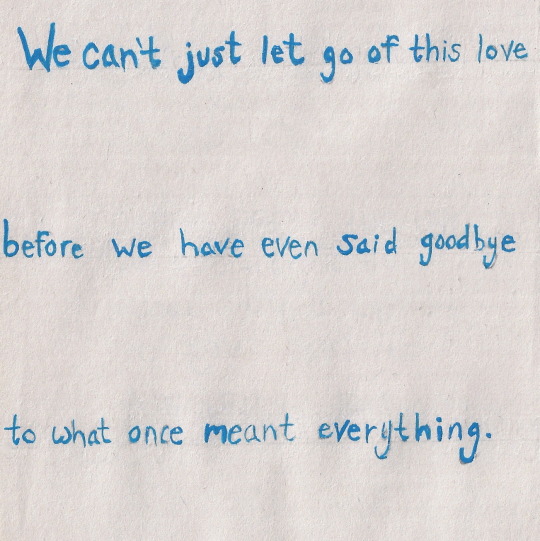 We can't just let go of this love
before we have even said goodbye
to what once meant everything.